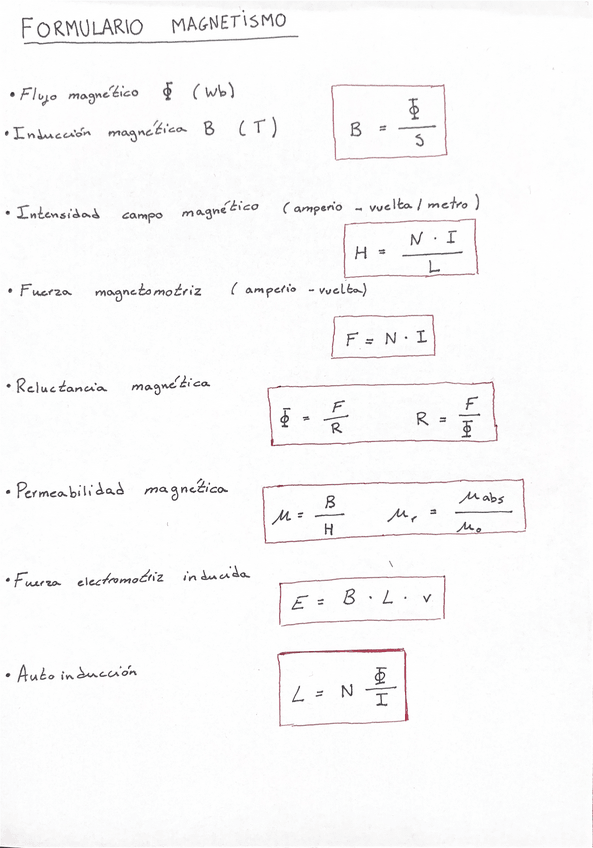 FORMULARIO MAGNETISMO
• Flujo magnético Φ (Wb)
• Inducción magnética B (T)
B = Φ / S
• Intensidad campo magnético (amperio - vuelta / metro)
H = N · I / L
• Fuerza magnetomotriz (amperio - vuelta)
F = N · I
• Reluctancia magnética
Φ = F / R R = F / Φ
• Permeabilidad magnética
μ = B / H μr = μabs / μo
• Fuerza electromotriz inducida
E = B · L · v
• Auto inducción
L = N Φ / I